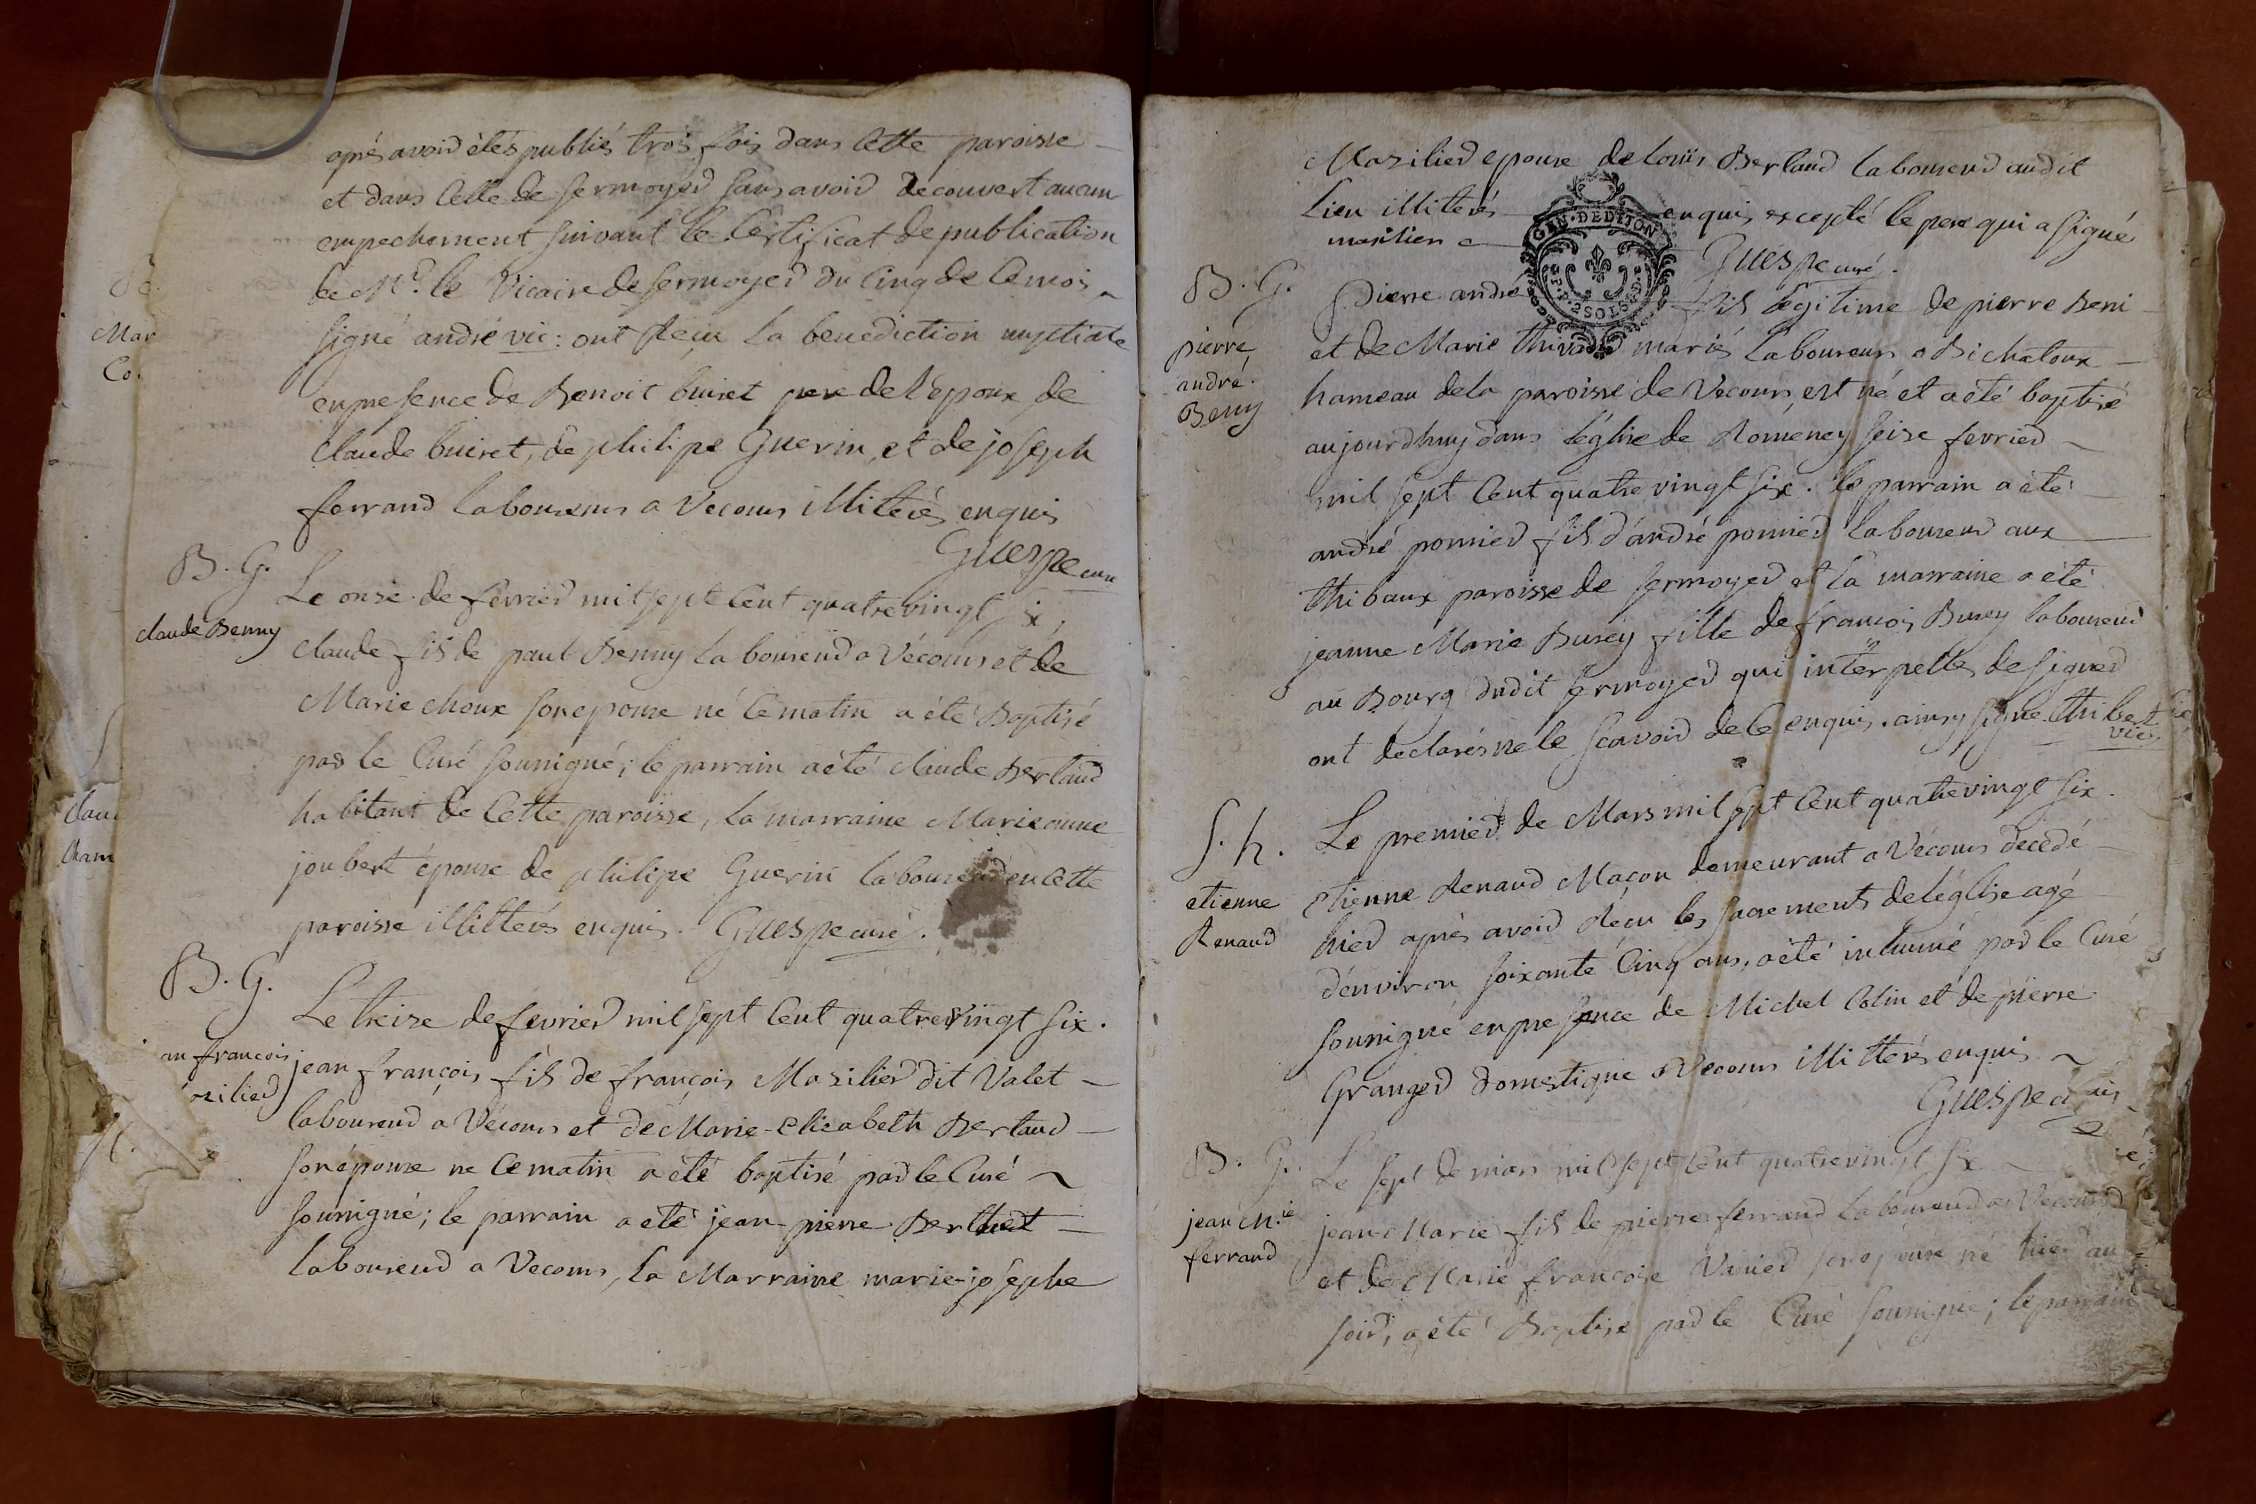 après avoir étés publiés trois fois dans Cette paroisse
et dans Celle de sermoyer sans avoir decouvert aucun
empechement suivant le Certificat de publication
de Mr. le Vicaire de sermoyer du Cinq de Ce mois
signé andré vic: ont reçu la benediction nuptiale
en presence de Benoit buiret pere de l'epoux, de
Claude buiret, de philipe Guerin, et de joseph
ferrand laboureurs a Vecours illiterés enquis
Guespe curé
B. G.
claude Benny
Le onze de fevrier mil sept Cent quatre vingt six,
claude fils de paul Benny laboureur a Vécours et de
Marie choux son epouse né Ce matin a été Baptisé
par le Curé soussigné; le parrain a été claude Berland
habitant de Cette paroisse, la marraine Marieanne
joubert épouse de philipe Guerin laboureur en Cette
paroisse illiterés enquis. Guespe curé.
B. G.
an françois
azilier
Le treize de fevrier mil sept Cent quatre vingt six.
jean françois fils de françois Mazilier dit Valet
laboureur a Vécours et de Marie-elizabeth Berland
son épouse né Ce matin a été baptisé par le Curé
soussigné; le parrain a été jean-pierre Berthet
laboureur a Vecours, la Marraine marie-josephe
Mar
Co
clau
Mazilier epouse de Louis Berland laboureur audit
Lieu illiterés enquis excepté le pere qui a signé
masilier
GEN. DE DIJON
Guespe curé.
B. G.
pierre
andré
Beny
Pierre andré fils légitime de pierre Beni
et de Marie mariés laboureurs a Bichatoux
hameau de la paroisse de Vecours, est né et a été baptisé
aujourdhuy dans l'église de Romeney seize fevrier
mil sept Cent quatre vingt six. le parrain a été
andré ponnier fils d'andré ponnier laboureur aux
thibaux paroisse de sermoyer et la marraine a été
jeanne Marie Burey fille de françois Burey laboureur
au Bourg dudit sermoyer qui interpellés de signer
ont declarés ne le scavoir de Ce enquis. ainsy signé thibert
vic
S. h.
etienne
Renaud
Le premier de Mars mil sept Cent quatre vingt six.
etienne Renaud Maçon demeurant a Vécours decédé
hier après avoir reçu les sacrements de l'église agé
d'environ soixante Cinq ans, a été inhumé par le Curé
soussigné en presence de Michel Colin et de pierre
Granger domestique a Vecours illitterés enquis
Guespe
B. G.
jean M.ie
ferrand
Le sept de mars mil sept Cent quatre vingt six
jean Marie fils de pierre ferrand laboureur a Vecours
et de Marie françoise son epouse né hier au
soir, a été Baptisé par le Curé soussigné; le parrain